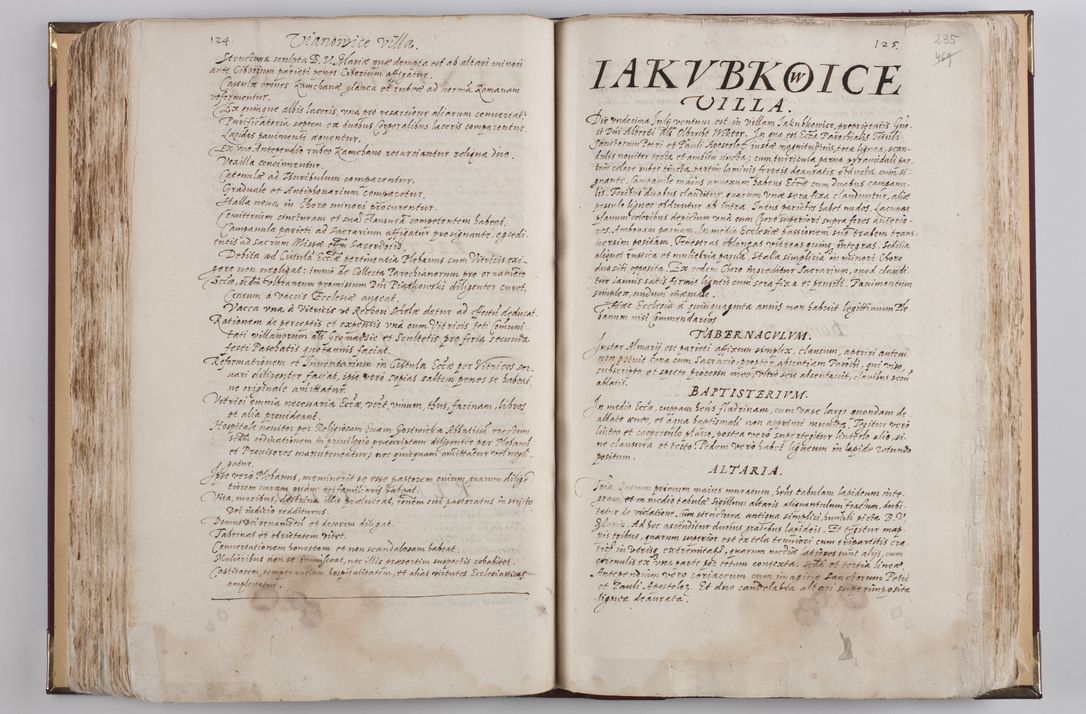 124. Vianowice Villa.
Structura sculpta B. V. Mariæ quæ dempta est ab altari minori
ante Ciborium parieti penes Ciborium affigatur.
Casulæ omnes Kamchauæ glauca et rubeæ ad normã Romanam
reformentur.
Ex quinque albis laceris, una pro resarciene aliarum conuertat:
Purificatoria septem ex duobus Corporalibus laceris comparentur.
Lapides pauimenti æquentur.
Ex uno Antependio rubeo Kamchano resarciantur reliqua duo.
Vexilla concinnentur.
Catenulæ ad Thuribulum comparentur.
Graduale et Antiphonarium comparetur.
Stalla noua in Choro minori procurentur.
Cemiterium cincturam et suã Clausurã competentem habeat.
Campanula parieti ad Sacrarium affigatur pro signante egredi-
entis ad sacrum Missæ offm Sacerdotis.
Debita ad Cistulã Ecclæ pertinentia Plebanus cum Vitricis exi-
gere non negligat: imnò de Collecta Parochianorum pro ornamẽto
Ecclæ, scdm voltraneum promissum Dni Piaskowski diligenter curet.
Censum à Vaccis Ecclesiæ augeat.
Vacca una à Vitricis ut Rectori Scholæ detur ad effectũ deducat.
Rationem de perceptis et expensis unà cum Vitricis toti Comuni
tati villanorum als Gromadzie et Scultetis pro feria Secunda
festi Paschatis quotannis faciat.
Reformationem et Inuentarium in Cistula Ecclæ per Vitricos ser-
uari diligenter faciat, ipse verò copias saltem penes se habeat,
ne originale amittatur.
Vitrici omnia necessaria Ecclæ, vizt, vinum, thus, farinam, libros
et alia prouideant.
Hospitale nouiter per Religiosam suam Abbatissã erectum
iuxta ordinationem in priuilegio præscriptam diligenter per Plebanũ
et Prouisores manuteneatur; nec quicquam omittatur vel negli-
gatur.
Ipse verò Plebanus, meminerit se esse pastorem ouium, quarum diligẽ-
tiorem curam quàm rei familiaris habeat.
Vita, moribus, doctrina illis præluceat, rõnem sui pastoratus in stricto
Dei iudicio redditurus.
Domus Dei ornamẽta et decorem diligat.
Tabernas et ebrietatem vitet.
Conuersationem honestam et non scandalosam habeat.
Mulieribus non se immisceat, nec illis præsertim suspectis cohabitet.
Castitatem, temperantiam, hospitalitatem, et alias virtutes Ecclesiasticas
amplectatur.
125. 235
469
IAKVBKOWICE
VILLA.
Die undecima July ventum est in villam Jakubkowice, proprietatis Gño-
si Dñi Alberti als Olbrycht Wiktor. In qua est Eccla Parochialis Tituli
Sanctorum Petri et Pauli Apostolor. iustæ magnitudinis, tota lignea, scan-
dulis nouiter tecta et ambitu cincta; cum turricula parua pyramidali par-
tim colore rubeo tincta, partim laminis ferreis deauratis obducta cum si-
gnante. Campanile maius annexum habens Ecclæ cum duabus campanu-
lis. Foribus duabus clauditur, quarum unæ sera fixa clauduntur, aliæ
pessulo ligneo obduntur ab intra. Intus parietes habet nudos. Lacunar
planum coloribus depictum unà cum Choro superiori supra fores anterio-
res. Ambonam paruam. In medio Ecclesiæ passionem supra trabem trans-
uersim positam. Fenestras oblongas vitreas quinq. integras. Sedilia
aliqua rustica et muliebria parua. Stalla simplicia in minori Choro
duo siti opposita. Ex eodem Choro ingreditur Sacrarium, quod claudi-
tur ianuis satis firmis ligneis cum sera fixa et pensili. Pauimentum
simplex, nudum inæquale.
Hæc Ecclesia à quinquaginta annis non habuit legitimum Ple-
banum nisi Commendarios.
TABERNACVLVM.
Instar Almarij est parieti affixum simplex, clausum, aperiri autem
non potuit una cum Sacrario, propter absentiam Parochi, qui viso,
subscripto et spreto processu meo, vltro sese absentauit, clauibus secũ
ablatis.
BAPTISTERIVM.
In medio Ecclæ, cuppam hẽns stadrinam, cum vase largo quondam de-
albato æneo, et aqua baptismali non apprime munda. Tegitur verò
linteo et cooperculo plano, postea verò supertegitur linteolo alio, si-
ne clausura et tecto. Pedem verò habet ligneum in lapide rotundo
positum.
ALTARIA.
Tria. Quorum primum maius muratum, hẽns tabulam lapideam inte-
gram, et in medio tabulæ sigillum altaris aliquantulum fractum, dubi-
tatur de violatione, cum structura antiqua simplici, humili picta B. V.
Mariæ. Ad hoc ascenditur duobus gradibus lapideis. Et tegitur map-
pis tribus, quarum superior est ex tela tenuiori cum tripartitis cra-
ticis in vtrisq. extremitatibus, quarum medius latiores sunt alijs, cum
coronulis ex una parte per totum contexta. scda et tertia lineæ.
Antependium verò coriaceum cum imagine Sanctorum Petri
et Pauli Apostolor. Et duo candelabra altari superimposita
lignea deaurata.